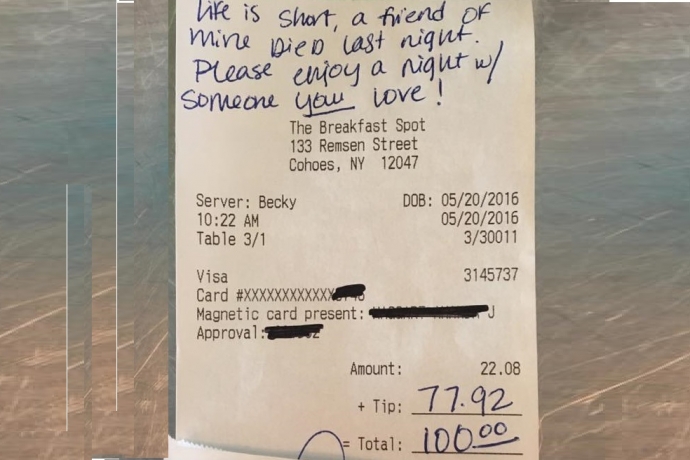 Life is short, a friend of
mine DIED last night.
Please enjoy a night w/
someone you love!
The Breakfast Spot
133 Remsen Street
Cohoes, NY 12047
Server: Becky DOB: 05/20/2016
10:22 AM 05/20/2016
Table 3/1 3/30011
Visa 3145737
Card #XXXXXXXXXXXX
Magnetic card present: J
Approval:
Amount: 22.08
+ Tip: 77.92
= Total: 100.00